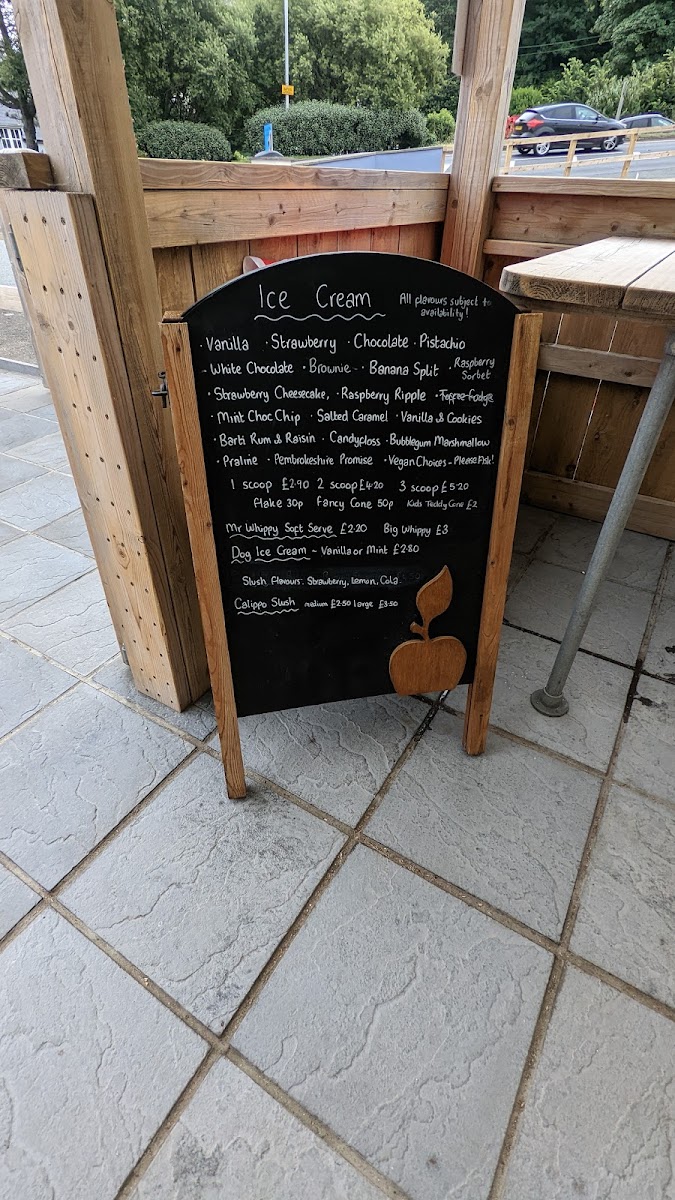 Ice Cream
All flavours subject to
availability!
Vanilla · Strawberry · Chocolate · Pistachio
- White Chocolate · Brownie - · Banana Split · Raspberry
Sorbet
· Strawberry Cheesecake, · Raspberry Ripple · Toffee Fudge
· Mint Choc Chip · Salted Caramel · Vanilla & Cookies
· Barti Rum & Raisin · Candyfloss · Bubblegum Marshmallow
· Praline · Pembrokeshire Promise · Vegan Choices - Please Ask!
1 scoop £2.90 2 scoop £4.20 3 scoop £5.20
Flake 30p Fancy Cone 50p Kids Teddy Cone £2
Mr Whippy Soft Serve £2.20 Big Whippy £3
Dog Ice Cream ~ Vanilla or Mint £2.80
Slush Flavours: Strawberry, Lemon, Cola
Calippo Slush medium £2.50 large £3.50